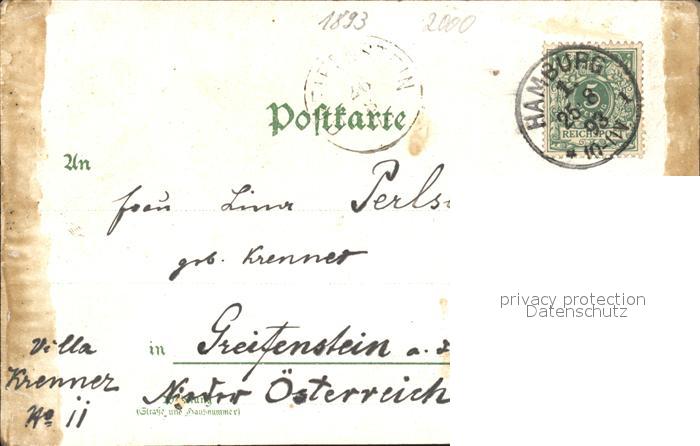 1893 2000
HAMBURG
1
25 8
93
5
REICHSPOST
Postkarte
An
Frau Lina
geb. Krenner
privacy protection
Datenschutz
in Greifenstein a. d.
Villa
Krenner
No II
Nieder Österreich
(Straße und Hausnummer)